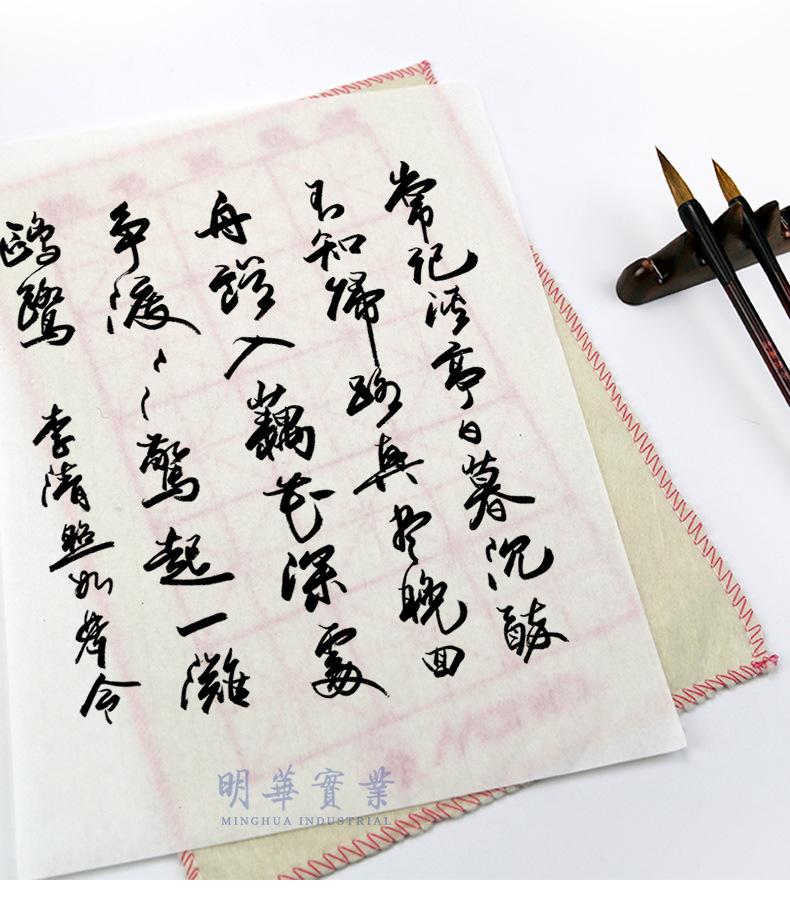 常记溪亭日暮沉醉
不知歸路興盡晚回
舟誤入藕花深處
争渡〻〻驚起一灘
鷗鷺 李清照如夢令
明華實業
MINGHUA INDUSTRIAL